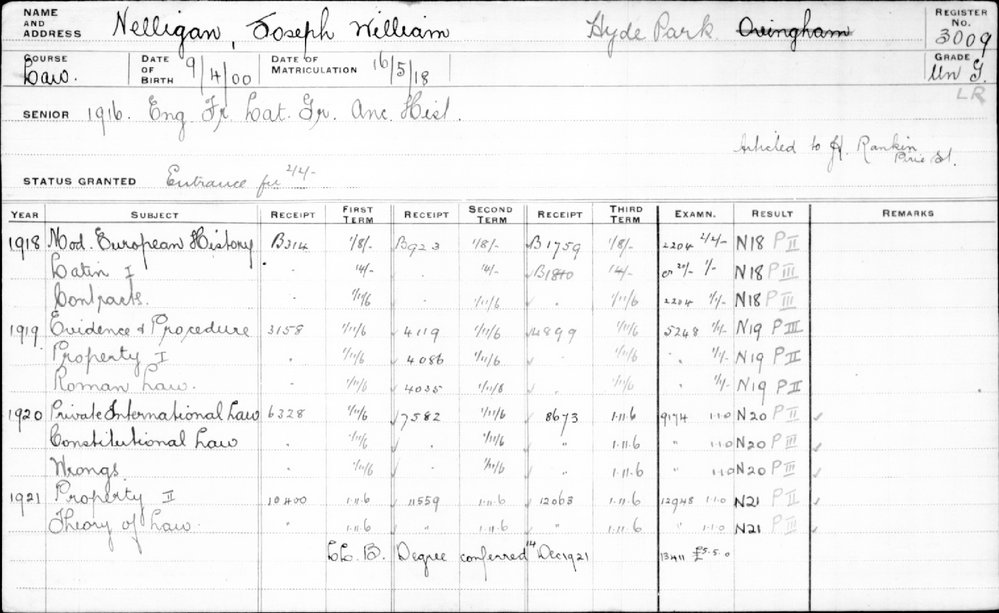 NAME AND ADDRESS Nelligan, Joseph William Hyde Park Ovingham REGISTER No. 3009
COURSE Law. DATE OF BIRTH 9/4/00 DATE OF MATRICULATION 16/5/18 GRADE Un G.
LR
SENIOR 1916. Eng Fr. Lat. Gr. Anc. Hist.
Articled to H. Rankin
Pirie St.
STATUS GRANTED Entrance fee 2/2/-
YEAR SUBJECT RECEIPT FIRST TERM RECEIPT SECOND TERM RECEIPT THIRD TERM EXAMN. RESULT REMARKS
1918 Mod. European History B314 1/8/- B923 1/8/- B1759 1/8/- 2204 2/2/- N18 P II
Latin I . 14/- 14/- B1840 14/- N18 P III
Contracts. . 1/11/6 . 1/11/6 . 1/11/6 2204 1/1/- N18 P III
1919 Evidence & Procedure 3158 1/11/6 4119 1/11/6 4899 1/11/6 5248 1/1/- N19 P III
Property I . 1/11/6 4086 1/11/6 . 1/11/6 " 1/1/- N19 P II
Roman Law. . 1/11/6 4035 1/11/6 . 1/11/6 " 1/1/- N19 P II
1920 Private International Law 6328 1/11/6 7582 1/11/6 8673 1.11.6 9174 1.1.0 N20 P II
Constitutional Law . 1/11/6 . 1/11/6 " 1.11.6 " 1.1.0 N20 P III
Wrongs. . 1/11/6 . 1/11/6 " 1.11.6 " 1.1.0 N20 P III
1921 Property II 10400 1.11.6 11559 1.11.6 12063 1.11.6 12948 1.1.0 N21 P II
Theory of Law. " 1.11.6 " 1.11.6 " 1.11.6 " 1.1.0 N21 P III
LL.B. Degree conferred 14 Dec 1921 13411 £5.5.0